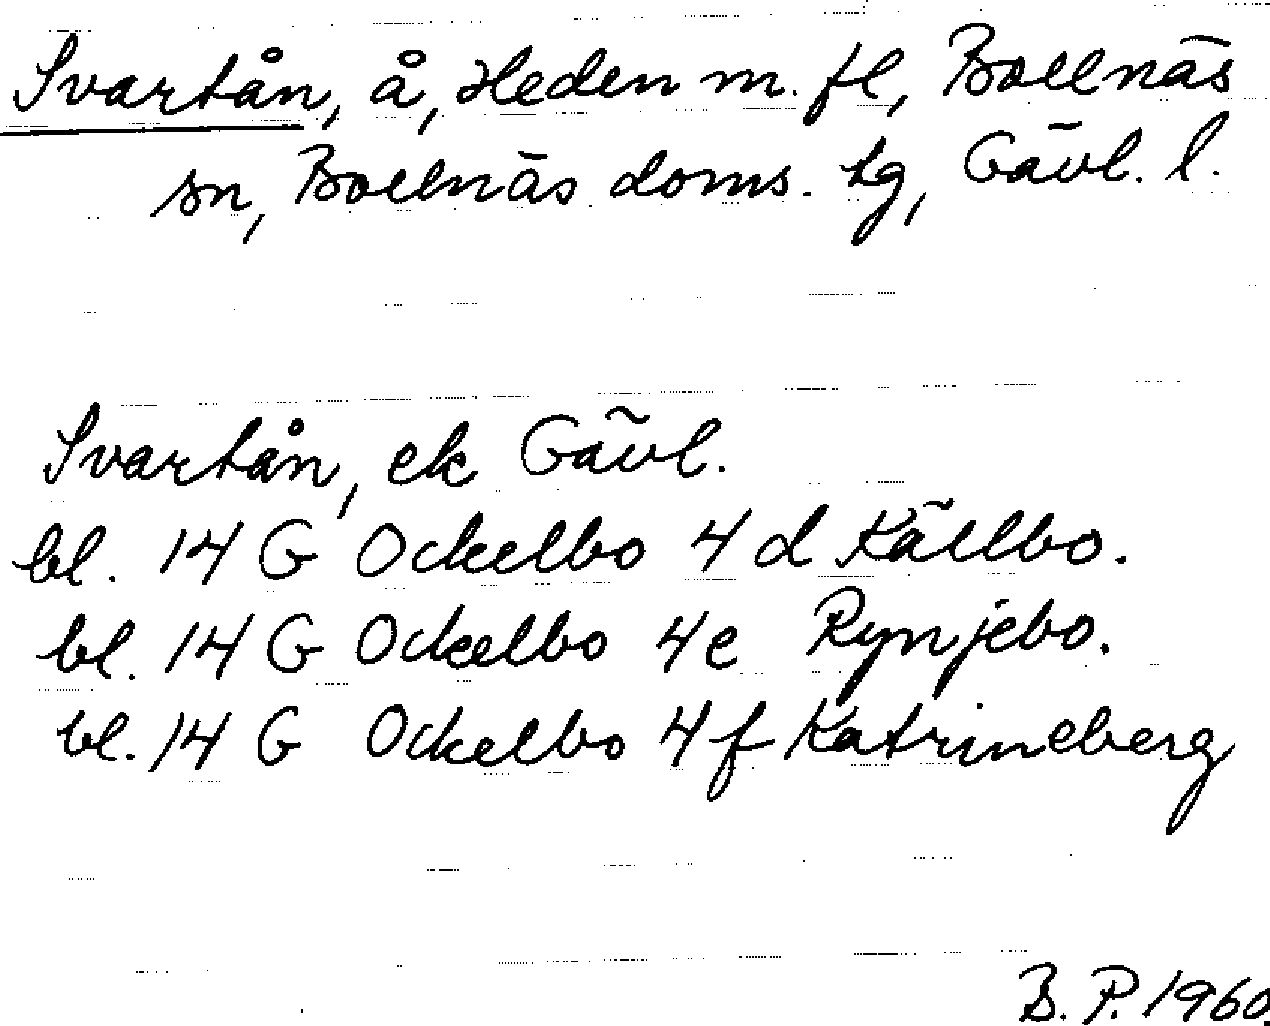 Svartån, å, Heden m. fl, Bollnäs
sn, Bollnäs doms. hg, Gävl. l.
Svartån, ek Gävl.
bl. 14 G Ockelbo 4 d Källbo.
bl. 14 G Ockelbo 4 e Rynjebo.
bl. 14 G Ockelbo 4 f Katrineberg
B. P. 1960.